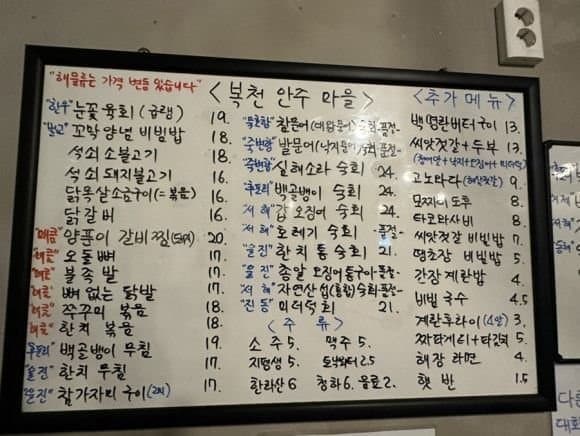 "해물류는 가격 변동 있습니다"
<복천 안주 마을>
"한우" 눈꽃 육회 (곱랭) 19.
"벌교" 꼬막 양념 비빔밥 18.
석쇠 소불고기 18.
석쇠 돼지불고기 16.
닭목살 소금구이(=볶음) 16.
닭갈비 16.
"매콤" 양푼이 갈비찜(돼지) 20.
"매콤" 오돌뼈 17.
"매콤" 불족발 17.
"매콤" 뼈 없는 닭발 17.
"매콤" 쭈꾸미 볶음 18.
"매콤" 한치 볶음 18.
"후포리" 백골뱅이 무침 19.
"울진" 한치 무침 17.
"울진" 참가자미 구이(2미) 17.
"묵호항" 참문어(대왕문어)숙회 -품절-
"주변항" 발문어(낙지문어)숙회 -품절-
"주변항" 실해소라 숙회 24.
"후포리" 백골뱅이 숙회 24.
"서해" 갑오징어 숙회 24.
"서해" 호래기 숙회 -품절-
"울진" 한치 통숙회 21.
"울진" 총알 오징어 통구이 -품절-
"서해" 자연산 섭(홍합)숙회 -품절-
"진동" 미더덕회 21.
<주류>
소주 5. 맥주 5.
지평생 5. 토닉워터 2.5
한라산 6 청하 6. 음료 2.
<추가 메뉴>
백명란버터구이 13.
씨앗젓갈+두부 13.
(청어알+낙지+오징어+미더덕)
고노와다(해삼젓갈) 9.
모찌리 도후 8.
타코와사비 8.
씨앗젓갈 비빔밥 7.
땡초장 비빔밥 5.
간장 계란밥 4.
비빔 국수 4.5
계란후라이(4알) 3.
짜파게티+타김치 5.
해장 라면 4.
햇반 1.5